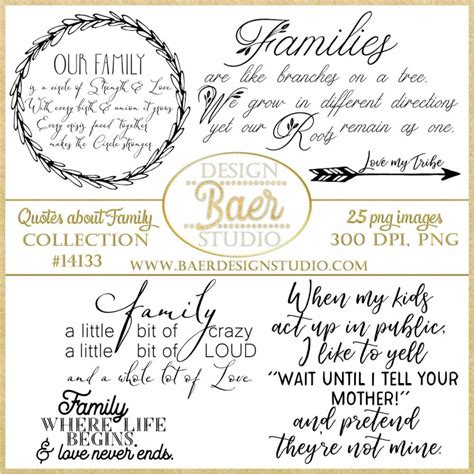 OUR FAMILY
is a circle of Strength & Love.
With every birth & union it grows.
Every crisis faced together
makes the Circle stronger.
Families
are like branches on a tree.
We grow in different directions
yet our Roots remain as one.
Love my Tribe
Quotes about Family
COLLECTION
#14133
DESIGN
Baer
STUDIO
25 png images
300 DPI, PNG
WWW.BAERDESIGNSTUDIO.COM
family
a little bit of crazy
a little bit of LOUD
and a whole lot of Love.
Family
WHERE LIFE
BEGINS,
& love never ends.
When my kids
act up in public,
I like to yell
"WAIT UNTIL I TELL YOUR
MOTHER!"
and pretend
they're not mine.